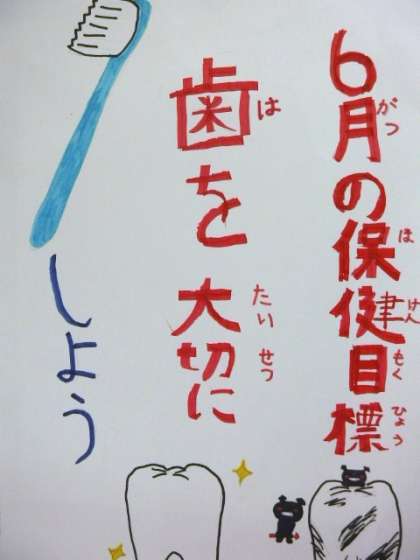 6月の保健目標
がつ ほ けん もく ひょう
歯を大切に
は たい せつ
しよう